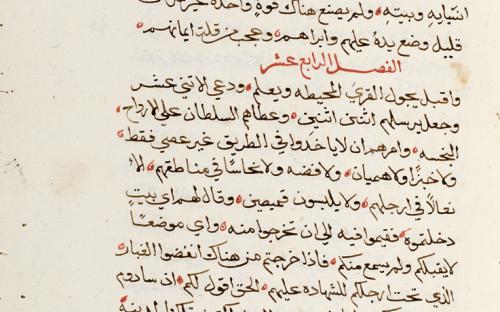 انسبايه وبيته ولم يصنع هناك قوة واحدة غير
قليل وضع يده عليهم وابراهم وعجب من قلة ايمانهم
الفصل الرابع عشر
واقبل يجول القري المحيطه ويعلم ودعي الاثني عشر
وجعل يرسلهم اثنين اثنين وعطاهم السلطان علي الارواح
النجسه وامرهم ان لا ياخدوا في الطريق غير عصي فقط
ولا خبزا ولا هميان ولا فضه ولا نحاسا في مناطقهم الا
نعالا في ارجلهم ولا يلبسون قميصين وقال لهم اي بيت
دخلتموه فقيموا فيه الي ان تخرجوا منه واي موضعا
لا يقبلكم ولم يسمع منكم فاذا خرجتم من هناك انفضوا الغبار
الذي تحت ارجلكم للشهاده عليهم الحق اقول لكم ان سادوم